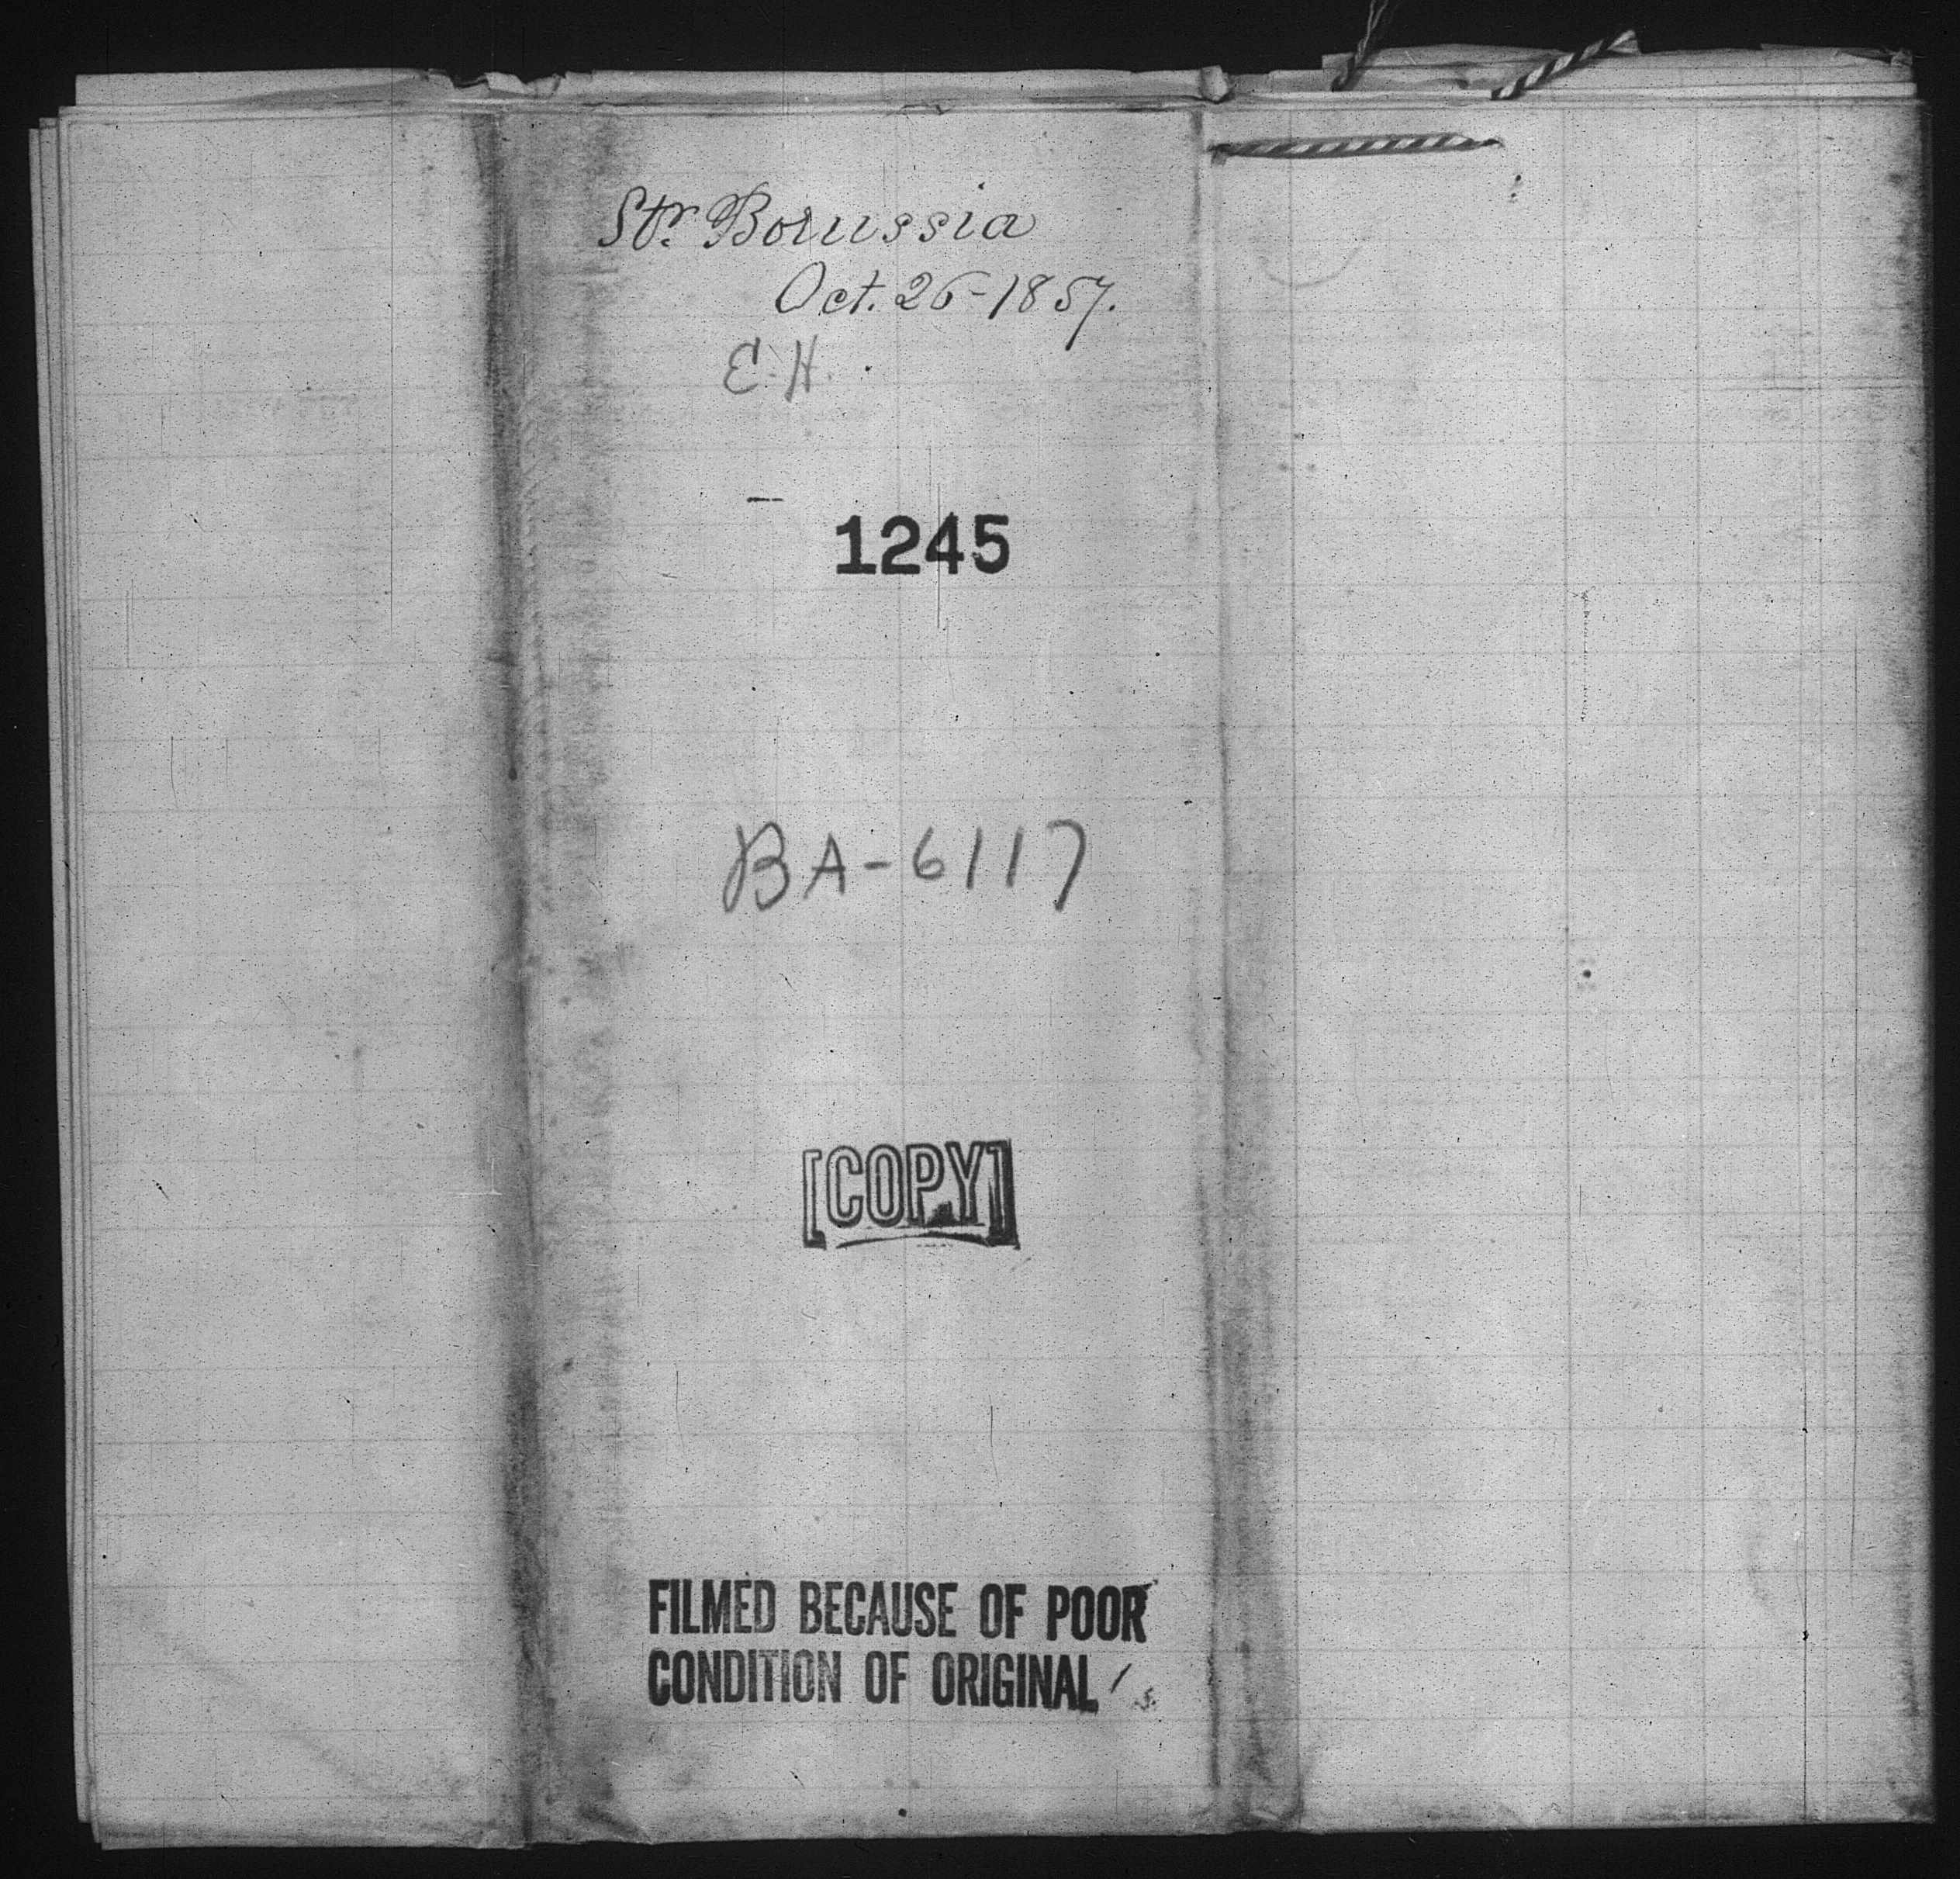 Str. Borussia
Oct. 26-1857.
E.H.
1245
BA-6117
[COPY]
FILMED BECAUSE OF POOR
CONDITION OF ORIGINAL